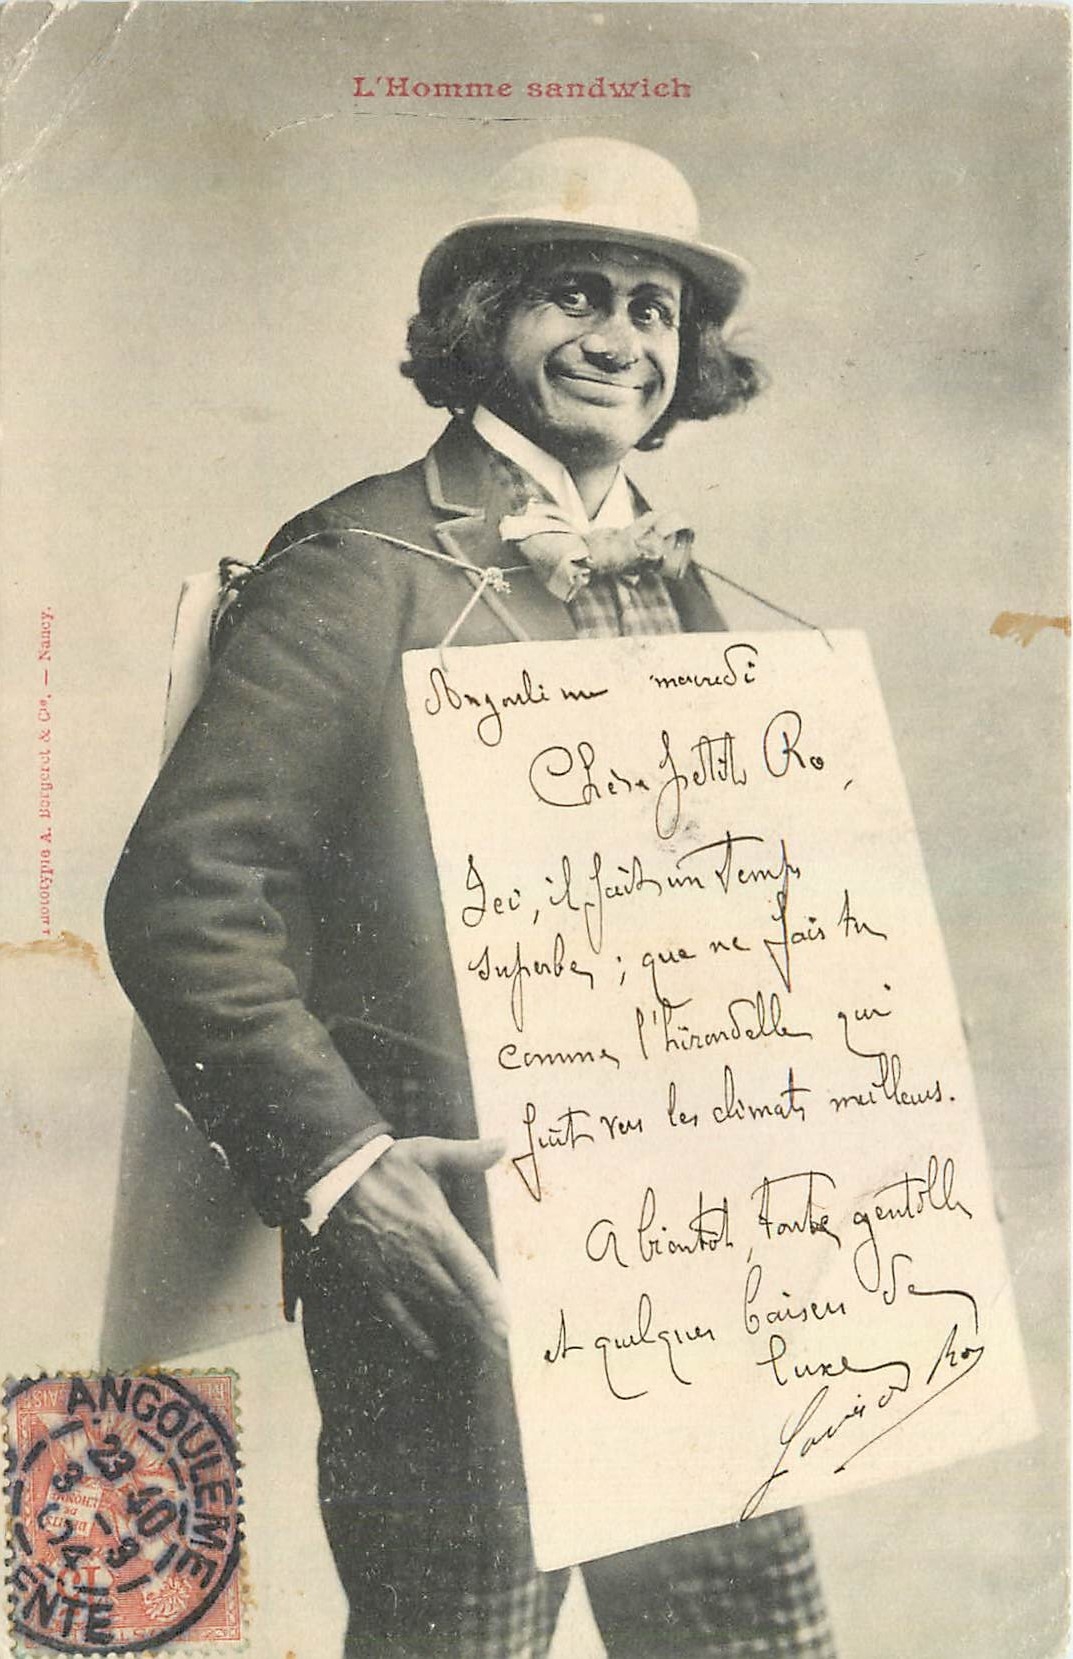 L'Homme sandwich
Phototypie A. Bergeret & Cie. — Nancy.
Angoulême mercredi
Chère petite Ro,
Ici, il fait un temps
superbe ; que ne fais tu
comme l'hirondelle qui
fuit vers les climats meilleurs.
A bientôt, toute gentille
et quelques baisers de
luxe
ANGOULEME
23 40
8 - 9
04
ENTE
DROITS
DE
L'HOMME
10